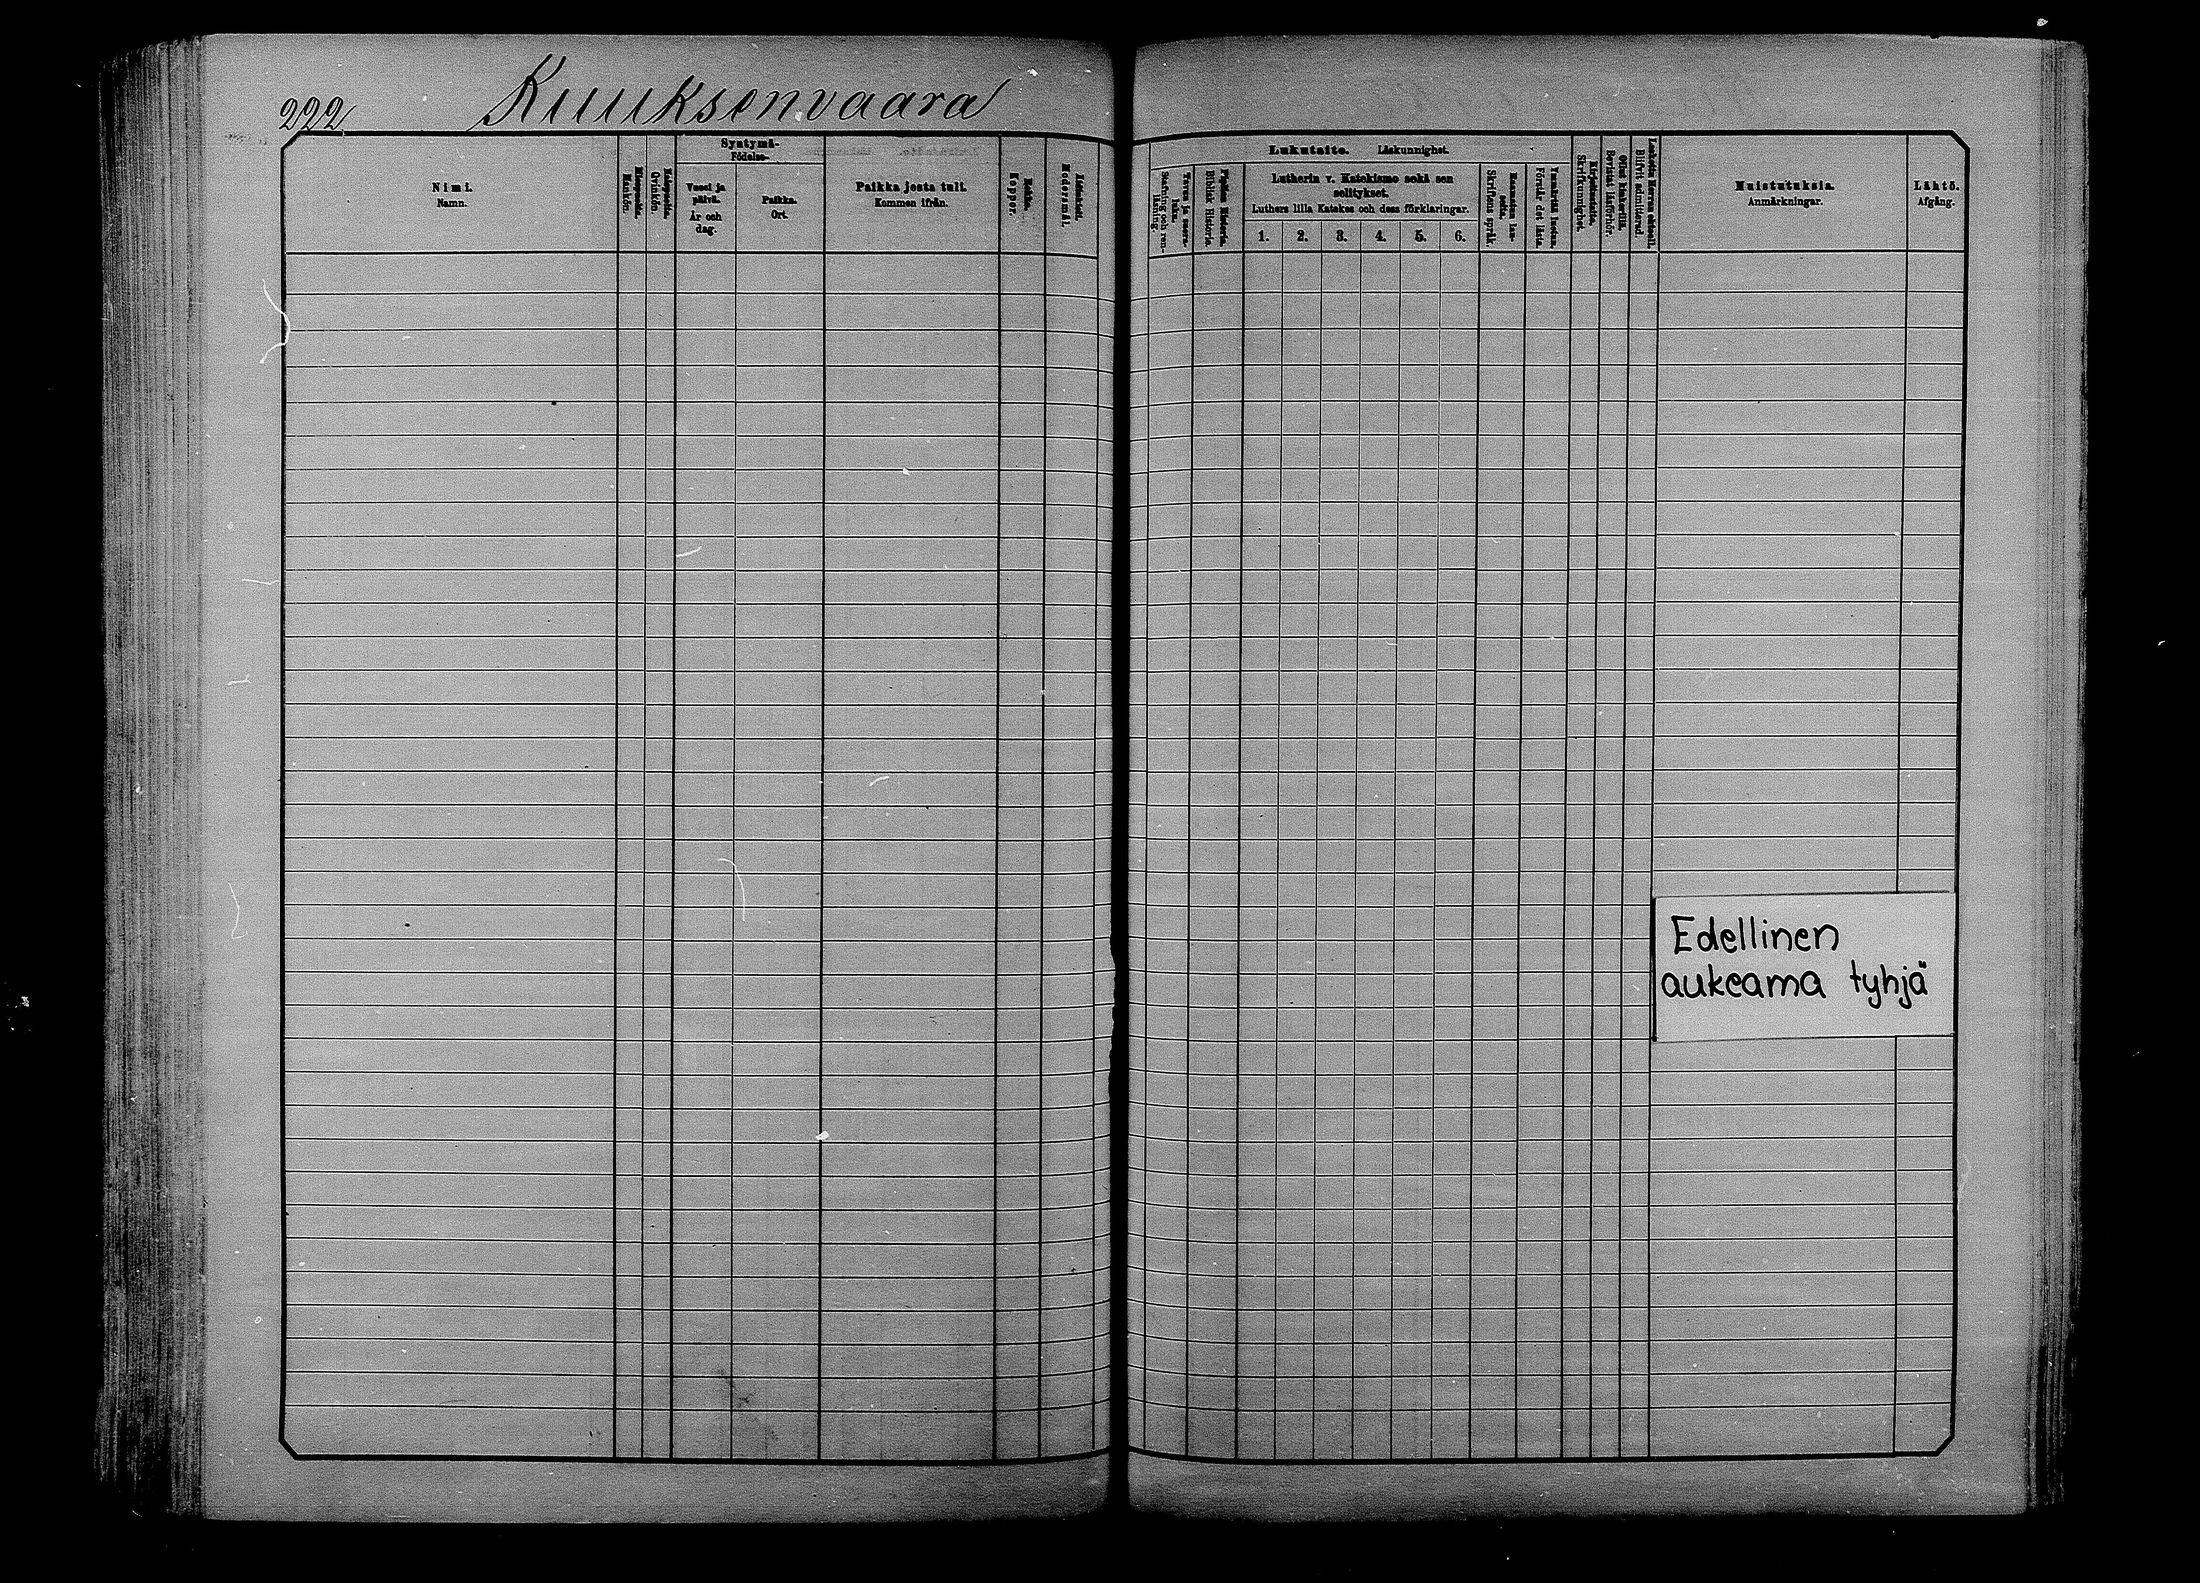 222
Kuuksenvaara
Nimi.
Namn.
Miespuolia.
Mankön.
Qvinkön.
Syntymä-
Födelse-
Vuosi ja
päivä.
År och
dag.
Paikka.
Ort.
Paikka josta tuli.
Kommen ifrån.
Rokko.
Koppor.
Modersmål.
Lukutaito. Läskunnighet.
Tavuu ja suora-
luku.
Stafning och ren-
läsning.
Piplian Historia.
Biblisk Historia.
Lutherin v. Katekismo sekä sen
selitykset.
Luthers lilla Katekes och dess förklaringar.
1. 2. 3. 4. 5. 6.
Raamatun lau-
seita.
Skriftens språk.
Ymmärtää lustun.
Förstår det lästa.
Kirjoitustaito.
Skrifkunnighet.
Ollut kinkerillä.
Bevistat läsförhör.
Laskettu Herran ehtooll.
Blifvit admitterad.
Muistutuksia.
Anmärkningar.
Lähtö.
Afgång.
Edellinen
aukeama tyhjä